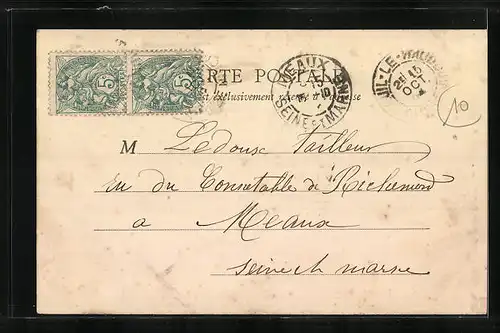 5 5
RTE POSTALE
est exclusivement réservé à l'adresse
MEAUX
SEINE ET MARNE
15
2E 15
OCT
10
M Ledoux Tailleur
ru du Connetable de Richemond
a Meaux
seine et marne